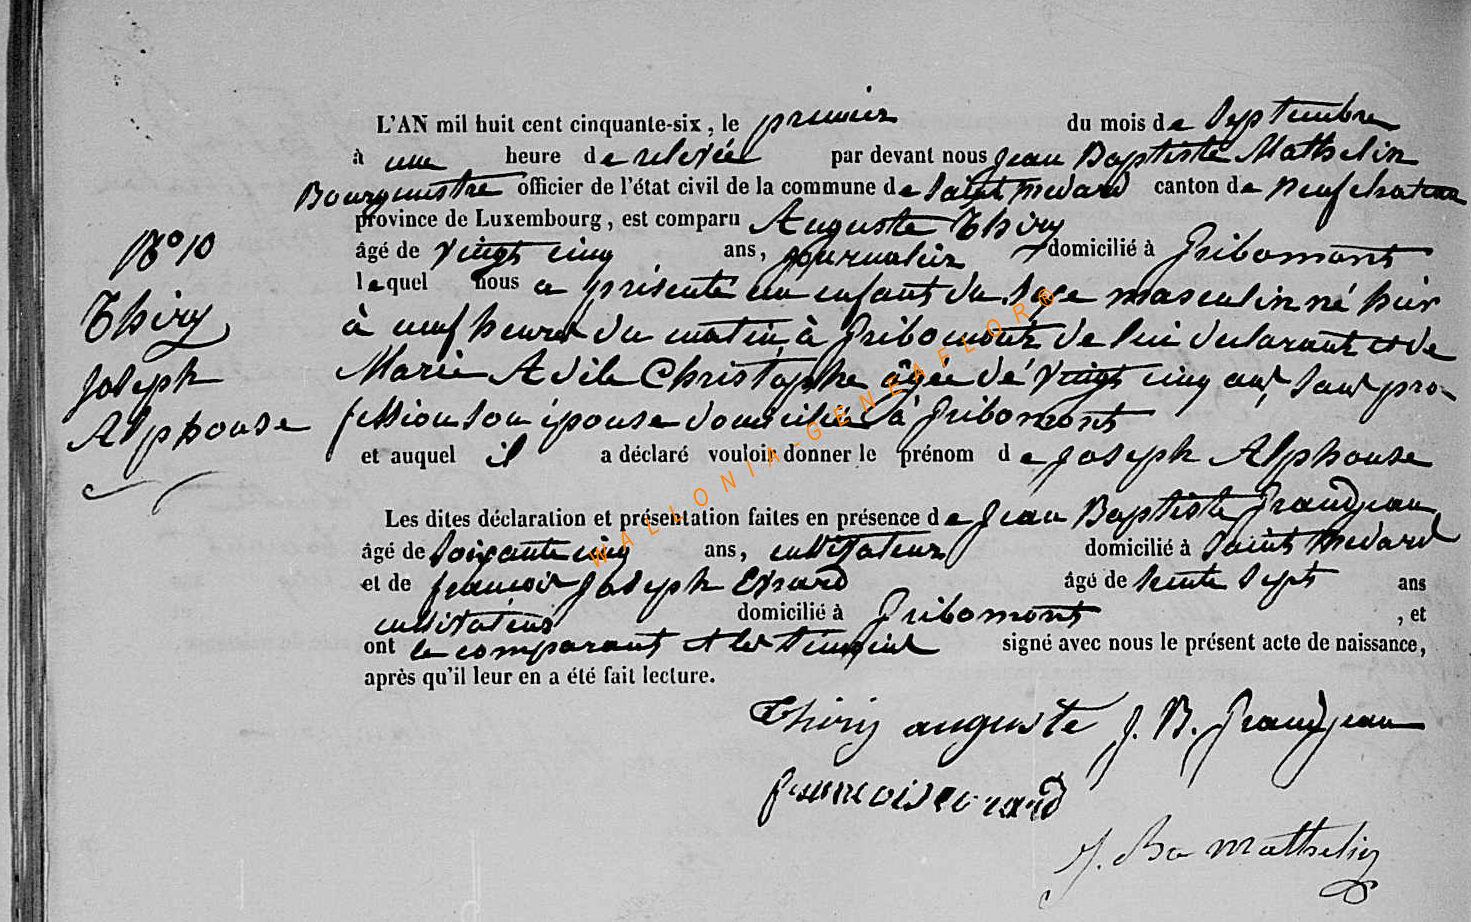 L'AN mil huit cent cinquante-six, le premier du mois de Septembre
à une heure de relevée par devant nous Jean Baptiste Mathelin
Bourgmestre officier de l'état civil de la commune de Saint Medard canton de Neufchateau
province de Luxembourg, est comparu Auguste Thiry
âgé de vingt cinq ans, journalier domicilié à Gribomont
lequel nous a présenté un enfant du Sexe masculin né hier
à neuf heures du matin à Gribomont de lui déclarant et de
Marie Adile Christophe âgée de vingt cinq ans, sans pro-
fession son épouse domiciliée à Gribomont
et auquel il a déclaré vouloir donner le prénom de Joseph Alphonse
Les dites déclaration et présentation faites en présence de Jean Baptiste Grandjean
âgé de Soixante cinq ans, cultivateur domicilié à Saint Medard
et de francois Joseph Evrard âgé de trente Sept ans
cultivateur domicilié à Gribomont , et
ont le comparant et les témoins signé avec nous le présent acte de naissance,
après qu'il leur en a été fait lecture.
N° 10
Thiry
Joseph
Alphonse
Thiry auguste J. B. Grandjean
francois evrard
J. Bte Mathelin
WALLONIA-GENEAFLOR®